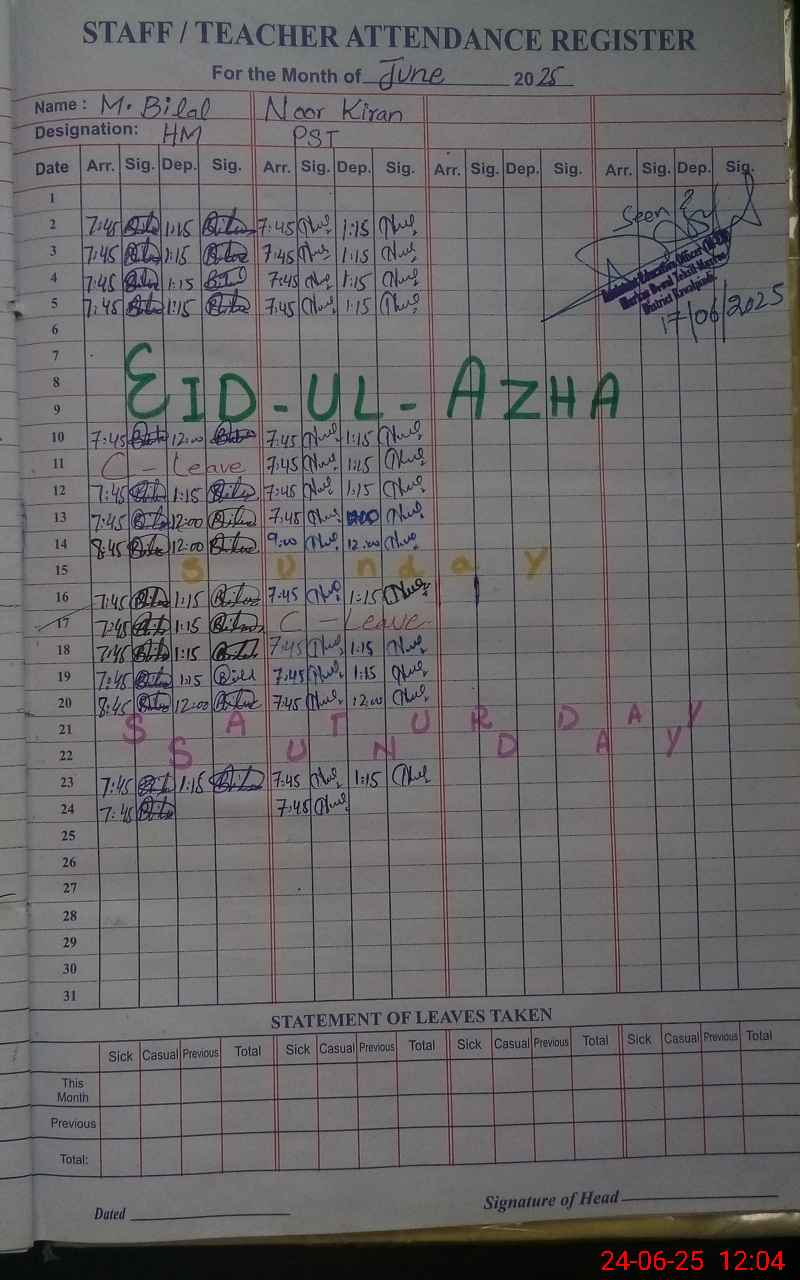 STAFF / TEACHER ATTENDANCE REGISTER
For the Month of June 2025
Name : M. Bilal Noor Kiran
Designation: HM PST
Date Arr. Sig. Dep. Sig. Arr. Sig. Dep. Sig. Arr. Sig. Dep. Sig. Arr. Sig. Dep. Sig.
1
2 7:45 1:15 7:45 1:15 Seen
3 7:45 1:15 7:45 1:15
4 7:45 1:15 7:45 1:15
5 7:45 1:15 7:45 1:15 17/06/2025
6
7
8 EID-UL-AZHA
9
10 7:45 12:00 7:45 1:15
11 C - Leave 7:45 1:15
12 7:45 1:15 7:45 1:15
13 7:45 12:00 7:45
14 8:45 12:00 9:00 12:00
15 Sunday
16 7:45 1:15 7:45 1:15
17 7:45 1:15 C - Leave
18 7:45 1:15 7:45 1:15
19 7:45 1:15 7:45 1:15
20 8:45 12:00 7:45 12:00
21 SATURDAY
22 SUNDAY
23 7:45 1:15 7:45 1:15
24 7:45 7:45
25
26
27
28
29
30
31
STATEMENT OF LEAVES TAKEN
Sick Casual Previous Total Sick Casual Previous Total Sick Casual Previous Total Sick Casual Previous Total
This
Month
Previous
Total:
Dated Signature of Head
24-06-25 12:04